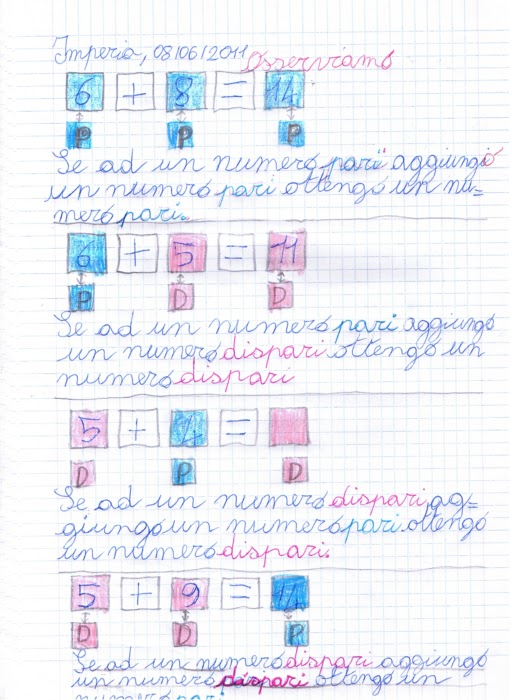 Imperia, 08/06/2011 Osserviamo
6 + 8 = 14
P P P
Se ad un numero pari aggiungo
un numero pari ottengo un nu=
mero pari.
6 + 5 = 11
P D D
Se ad un numero pari aggiungo
un numero dispari ottengo un
numero dispari
5 + 4 =
D P D
Se ad un numero dispari ag=
giungo un numero pari ottengo
un numero dispari.
5 + 9 = 14
D D P
Se ad un numero dispari aggiungo
un numero dispari ottengo un
numero pari